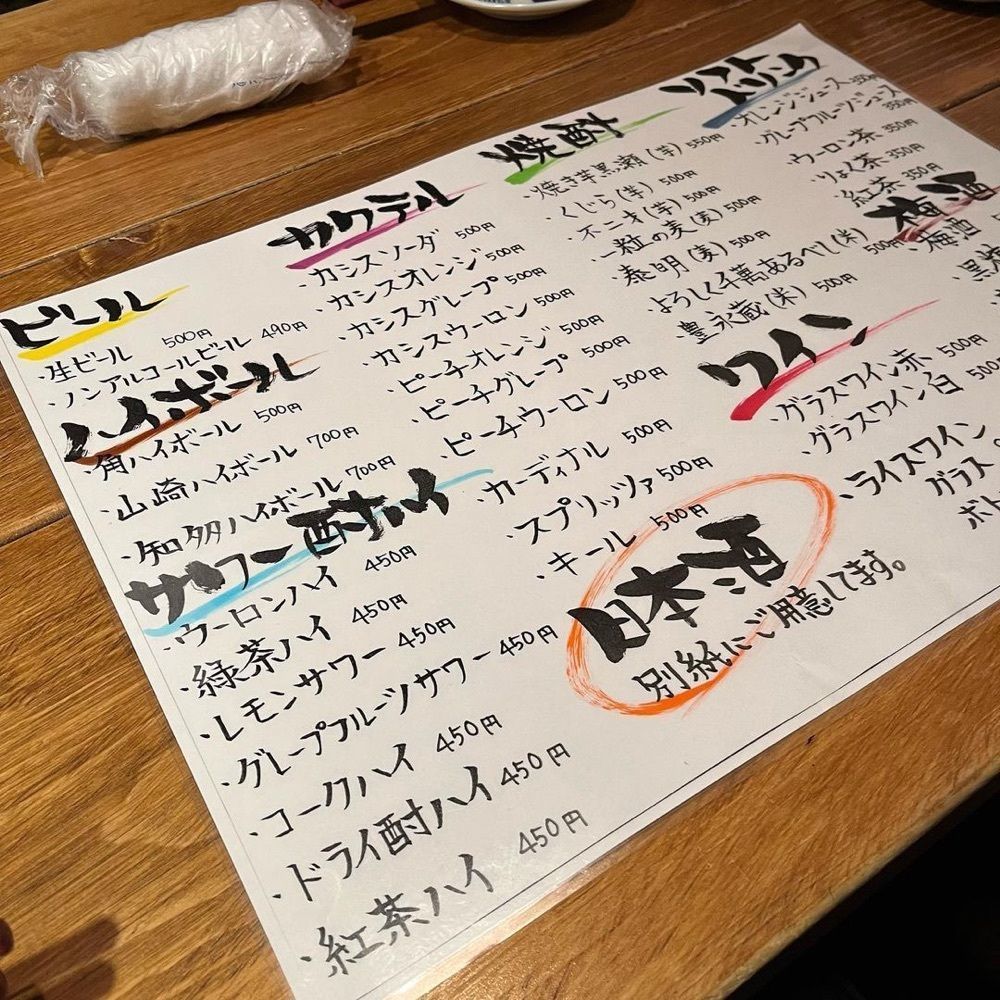 ビール
・生ビール 500円
・ノンアルコールビール 490円
ハイボール
・角ハイボール 500円
・山崎ハイボール 700円
・知多ハイボール 700円
サワー酎ハイ
・ウーロンハイ 450円
・緑茶ハイ 450円
・レモンサワー 450円
・グレープフルーツサワー 450円
・コークハイ 450円
・ドライ酎ハイ 450円
・紅茶ハイ 450円
カクテル
・カシスソーダ 500円
・カシスオレンジ 500円
・カシスグレープ 500円
・カシスウーロン 500円
・ピーチオレンジ 500円
・ピーチグレープ 500円
・ピーチウーロン 500円
・カーディナル 500円
・スプリッツァ 500円
・キール 500円
焼酎
・焼き芋黒瀬(芋) 550円
・くじら(芋) 500円
・不二才(芋) 500円
・一粒の麦(麦) 500円
・泰明(麦) 500円
・よろしく千萬あるべし(米) 500円
・豊永蔵(米) 500円
ワイン
・グラスワイン赤 500円
・グラスワイン白 500
・ライスワイン
グラス
ボト
日本酒
別紙にご用意してます。
ソフトドリンク
・オレンジジュース 350
・グレープフルーツジュース 350円
・ウーロン茶 350円
・りょく茶 350円
・紅茶 350円
梅酒
・梅酒